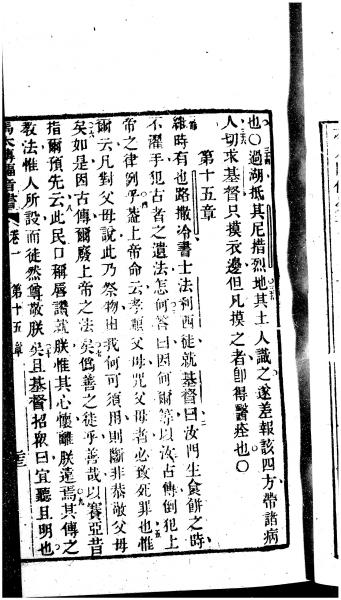 也○過湖抵其尼措烈地其土人識之遂差報該四方帶諸病
人切求基督只摸衣邊但凡摸之者卽得醫痊也○
第十五章
維時有也路撒冷書士法利西徒就基督曰汝門生食餅之時
不濯手犯古者之遺法怎何答曰因何爾等以汝古傳倒犯上
帝之律列乎葢上帝命云孝順父母咒父母者必致死罪也惟
爾云凡對父母說此乃祭物由我何可須用則斷非恭敬父母
矣如是因古傳爾廢上帝之法矣僞善之徒乎善哉以賽亞昔
指爾預先云此民口稱唇讚就朕惟其心懷離朕遠焉其傳之
敎法惟人所設而徒然尊敬朕矣且基督招衆曰宜聽且明也
馬太傳福音書 卷一 第十五章